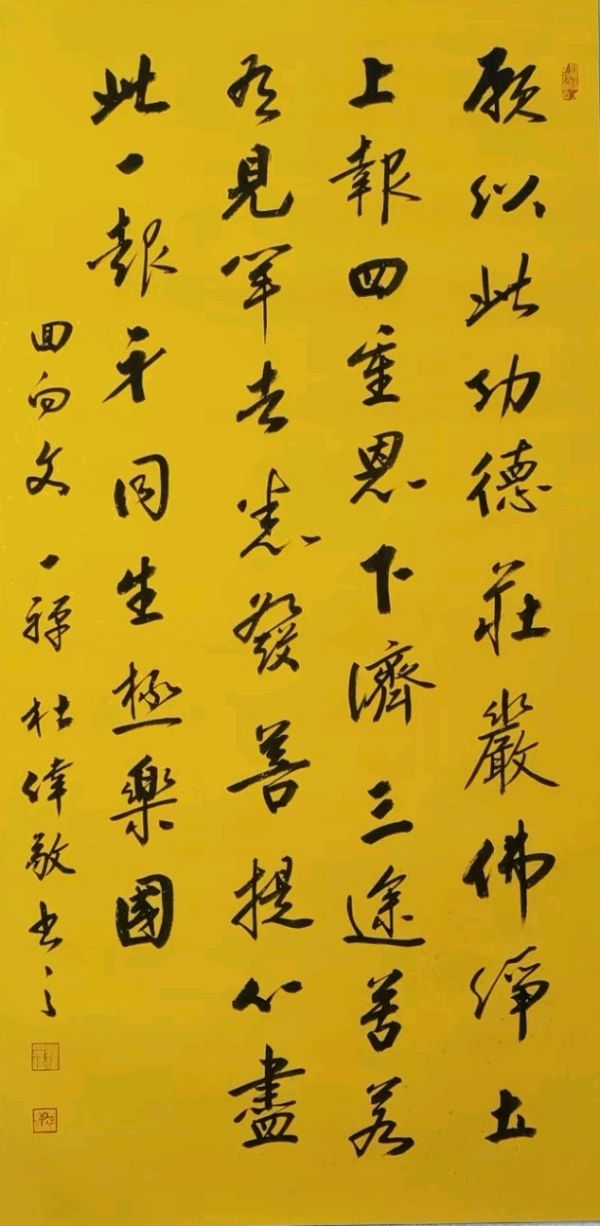 願以此功德莊嚴佛淨土
上報四重恩下濟三途苦若
有見聞者悉發菩提心盡
此一報身同生極樂國
回向文 一禪 杜偉敬書之